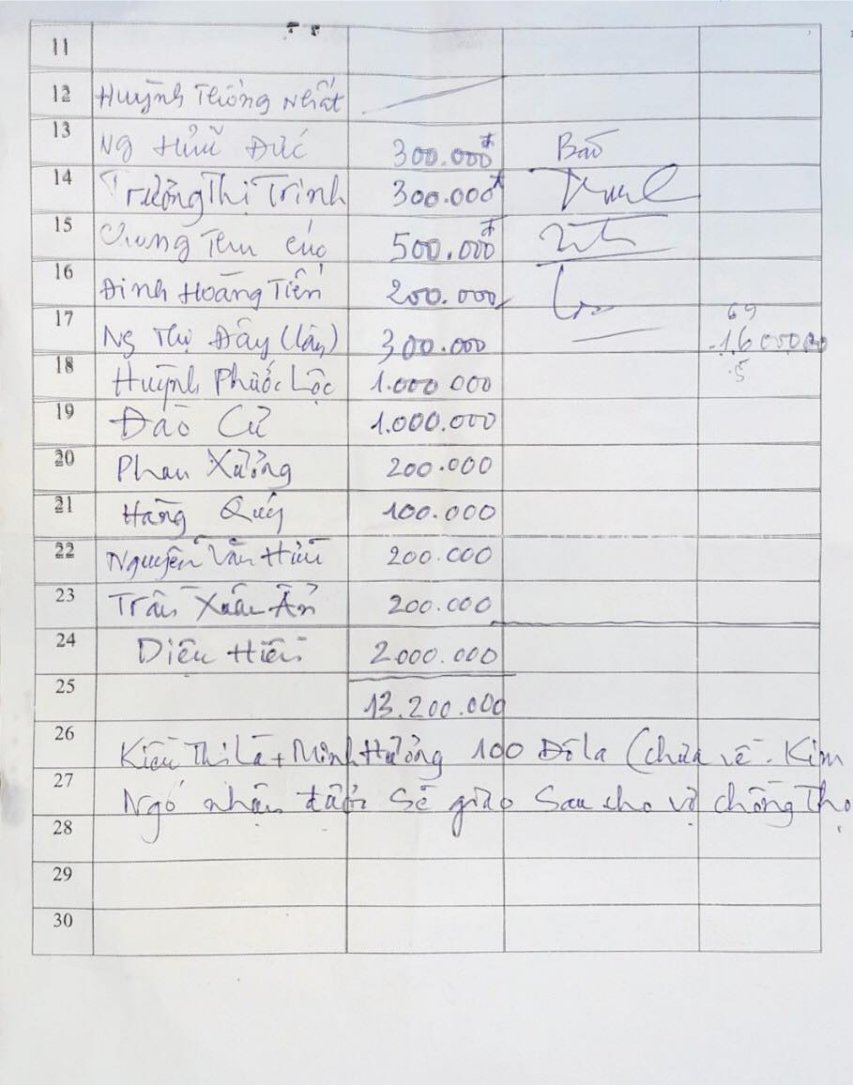 11
12 Huỳnh Thống Nhất
13 Ng Hữu Đức 300.000đ Bảo
14 Trưởng Thị Trinh 300.000đ
15 500.000đ
16 Đinh Hoàng Tiển 200.000
17 Ng Thị Đây 300.000
18 Huỳnh Phước Lộc 1.000.000
19 Đào Cử 1.000.000
20 Phan Xưởng 200.000
21 Hàng Quý 100.000
22 Nguyễn Văn Hữu 200.000
23 Trần Xuân Ẩn 200.000
24 Diệu Hiền 2.000.000
25 13.200.000
26 Kiều Thi Là + Minh Hưởng 100 Đô la (chưa về. Kim
27 Ngó nhận được sẽ giao sau cho vợ chồng Thọ
28
29
30